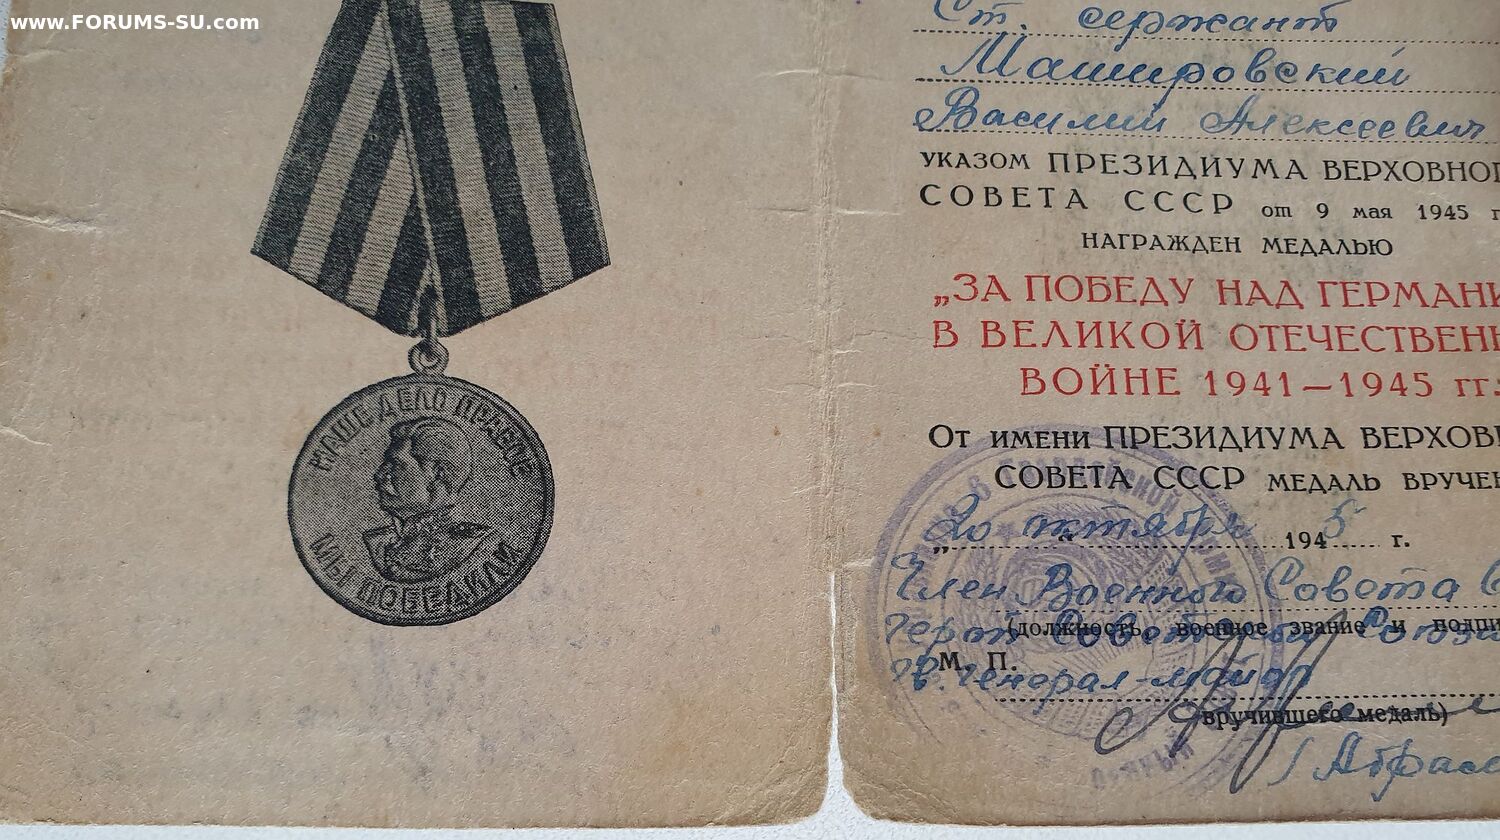 www.FORUMS-SU.com
НАШЕ ДЕЛО ПРАВОЕ
МЫ ПОБЕДИЛИ
Ст. сержант
Машировский
Василий Алексеевич
УКАЗОМ ПРЕЗИДИУМА ВЕРХОВНОГ
СОВЕТА СССР от 9 мая 1945 г
НАГРАЖДЕН МЕДАЛЬЮ
„ЗА ПОБЕДУ НАД ГЕРМАНИ
В ВЕЛИКОЙ ОТЕЧЕСТВЕНН
ВОЙНЕ 1941—1945 гг.
От имени ПРЕЗИДИУМА ВЕРХОВН
СОВЕТА СССР МЕДАЛЬ ВРУЧЕН
„20 октября 1945 г.
Член Военного Совета
(должность, военное звание и подпи
Герой Советского Союза
М. П.
гв. генерал-майор
вручившего медаль)